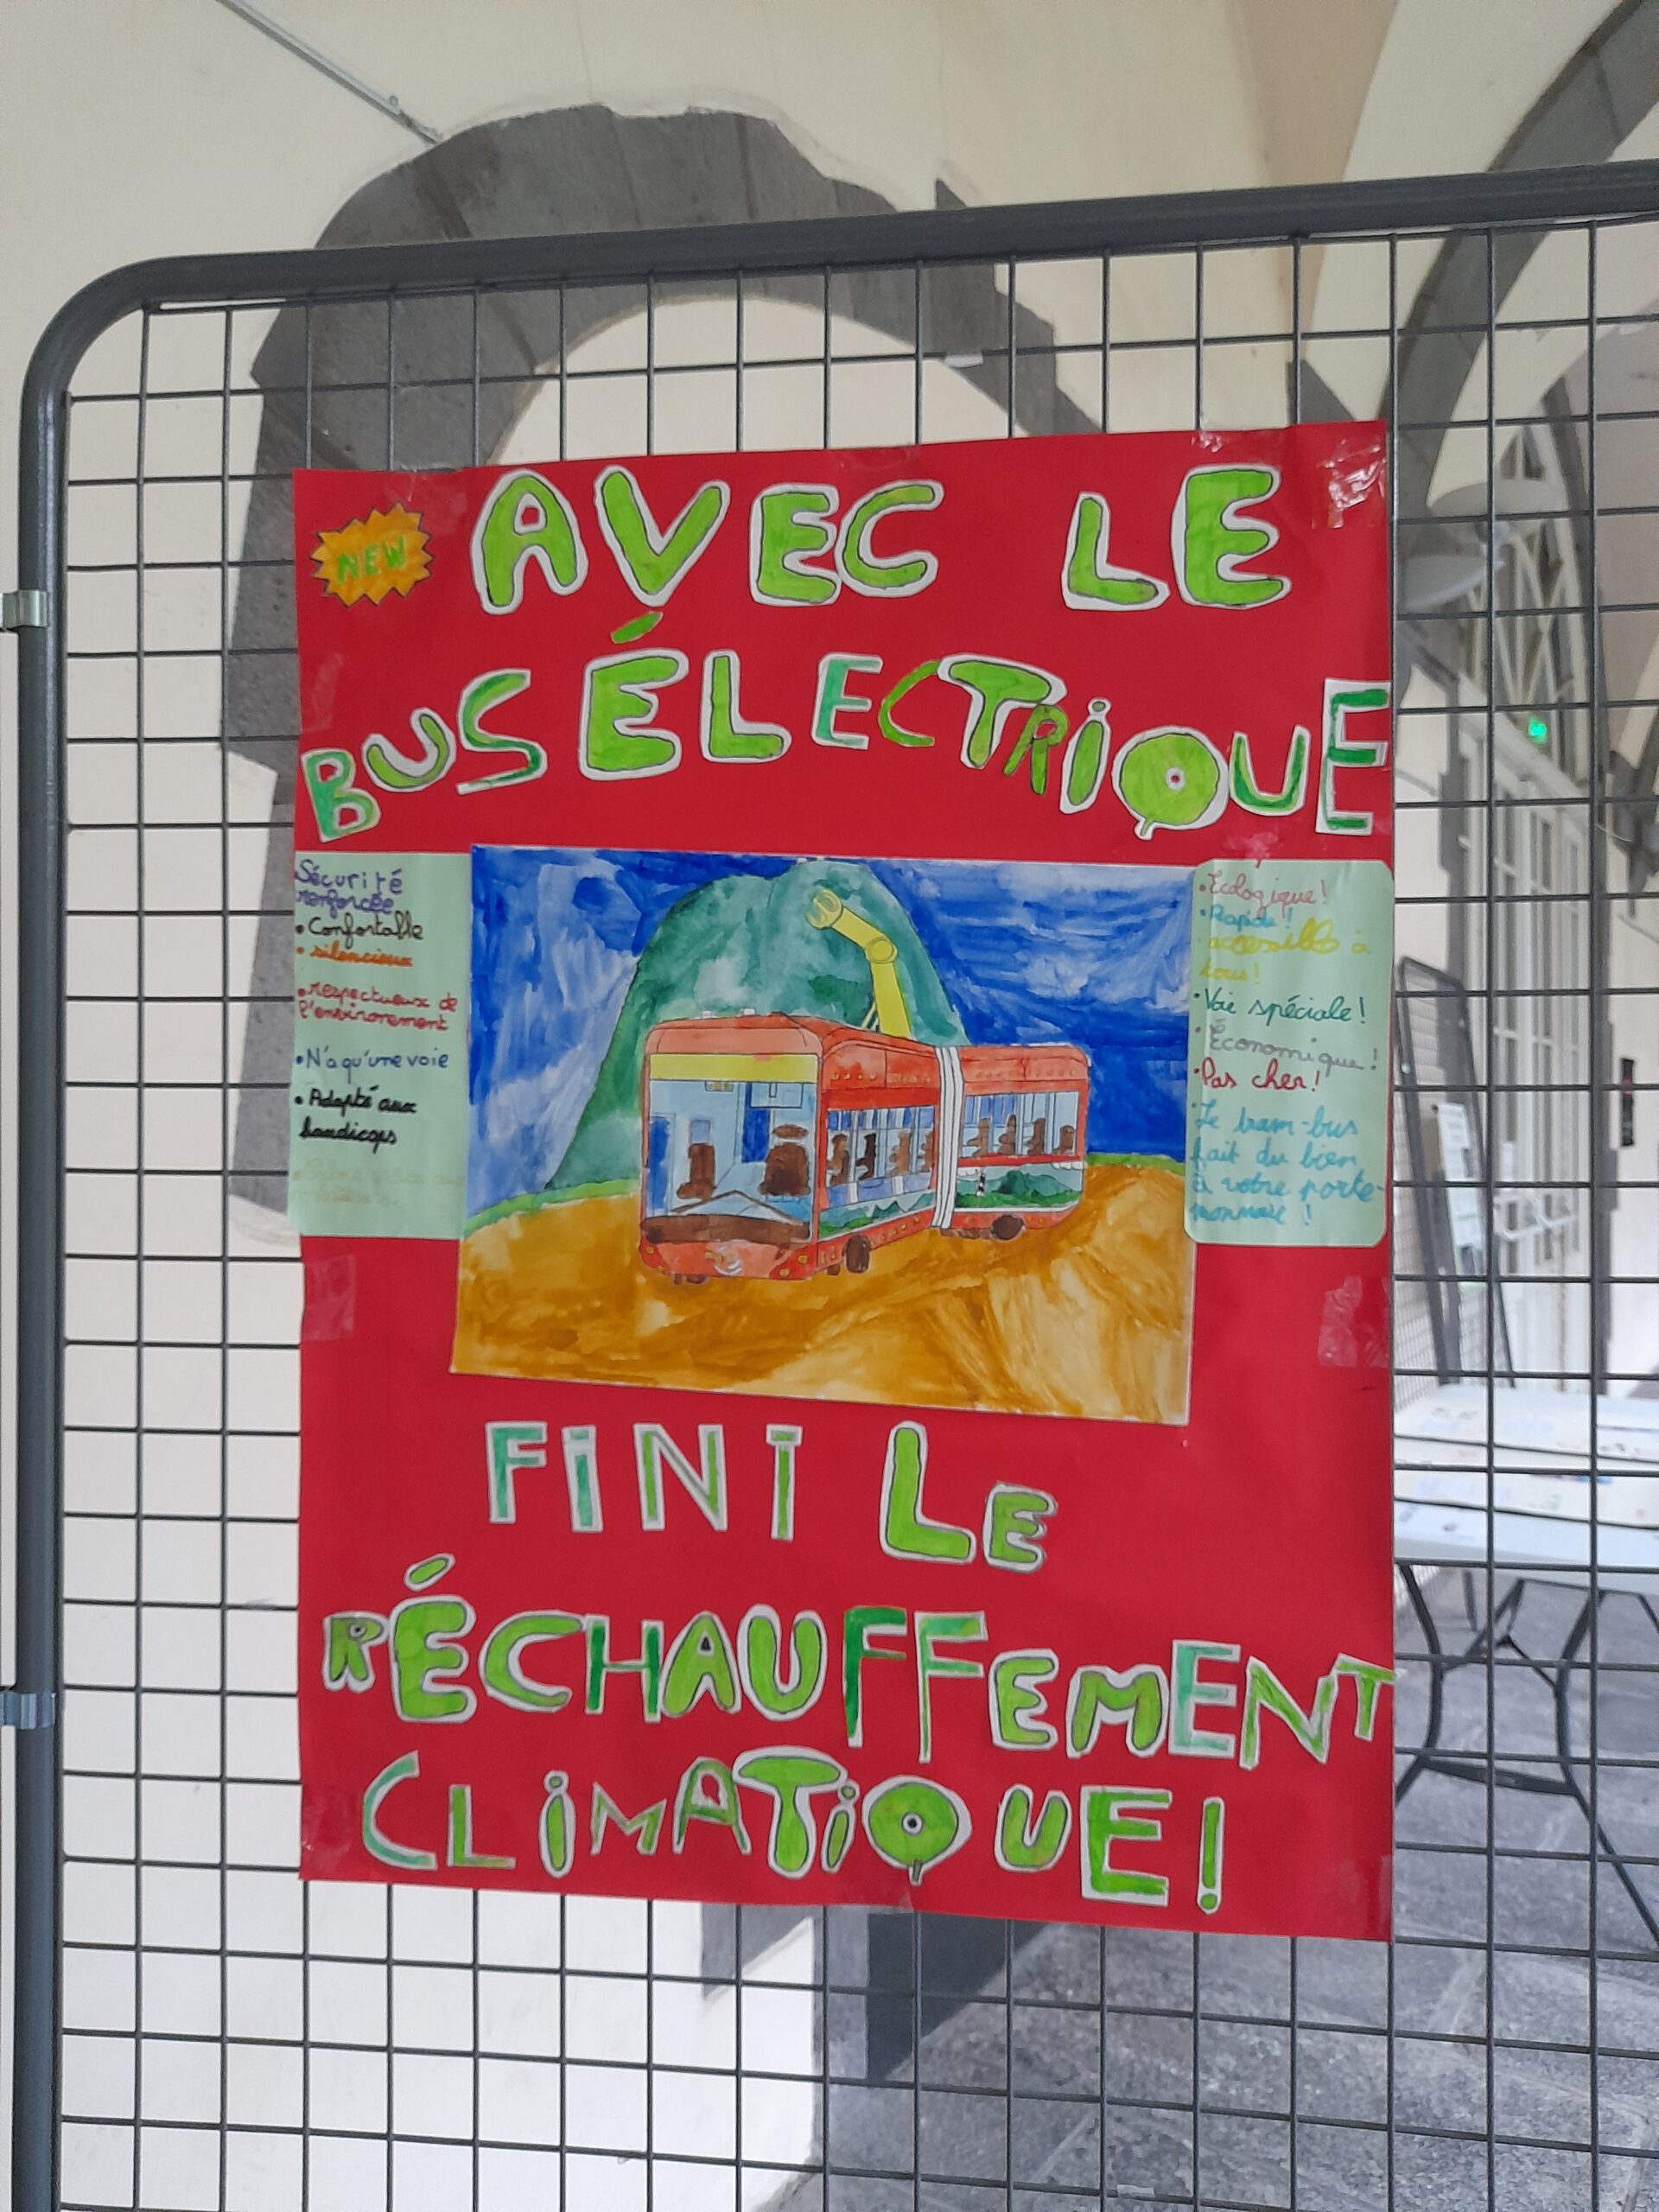 NEW
AVEC LE
BUS ÉLECTRIQUE
Sécurité
renforcée
• Confortable
• silencieux
• respectueux de
l'environement
• N'a qu'une voie
• Adapté aux
handicaps
• Écologique!
• Rapide!
accessible à
tous!
• Voie spéciale!
• Économique!
• Pas cher!
• Le tram-bus
fait du bien
à votre porte-
monnaie!
FINI LE
RÉCHAUFFEMENT
CLIMATIQUE!